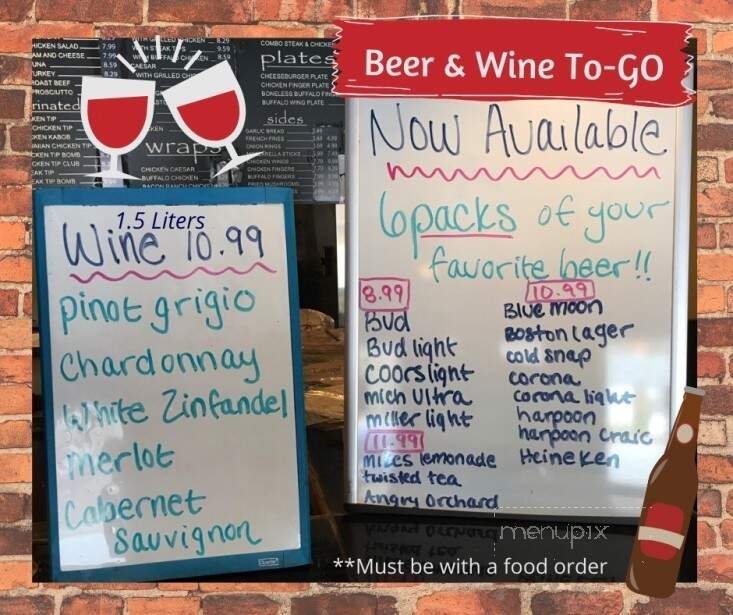 Beer & Wine To-GO
HICKEN SALAD 7.99
AM AND CHEESE 7.99
UNA 8.59
URKEY 8.29
OAST BEEF
PROSCIUTTO
rinated
KEN TIP
CHICKEN TIP
KEN KABOB
KEN TIP BOMB
KEN TIP CLUB
EAK TIP
EAK TIP BOMB
CHICKEN 8.29
WITH STEAK TIPS 9.59
9.59
CAESAR
WITH GRILLED
wraps
CHICKEN CAESAR
BUFFALO CHICKEN
BACON RANCH
COMBO STEAK & CHICKE
plates
CHEESEBURGER PLATE
CHICKEN FINGER PLATE
BONELESS BUFFALO
BUFFALO WING PLATE
sides
GARLIC BREAD
FRENCH FRIES
ONION RINGS
CHICKEN WINGS
CHICKEN FINGERS
BUFFALO FINGERS
FRIED MUSHROOMS
1.5 Liters
Wine 10.99
pinot grigio
Chardonnay
White Zinfandel
merlot
Cabernet
Sauvignon
Now Available
6packs of your
favorite beer!!
8.99
Bud
Bud light
Coors light
mich Ultra
miller light
11.99
mikes lemonade
twisted tea
Angry Orchard
10.99
Blue moon
Boston lager
cold snap
corona
corona light
harpoon
harpoon Craic
Heineken
menupix
**Must be with a food order